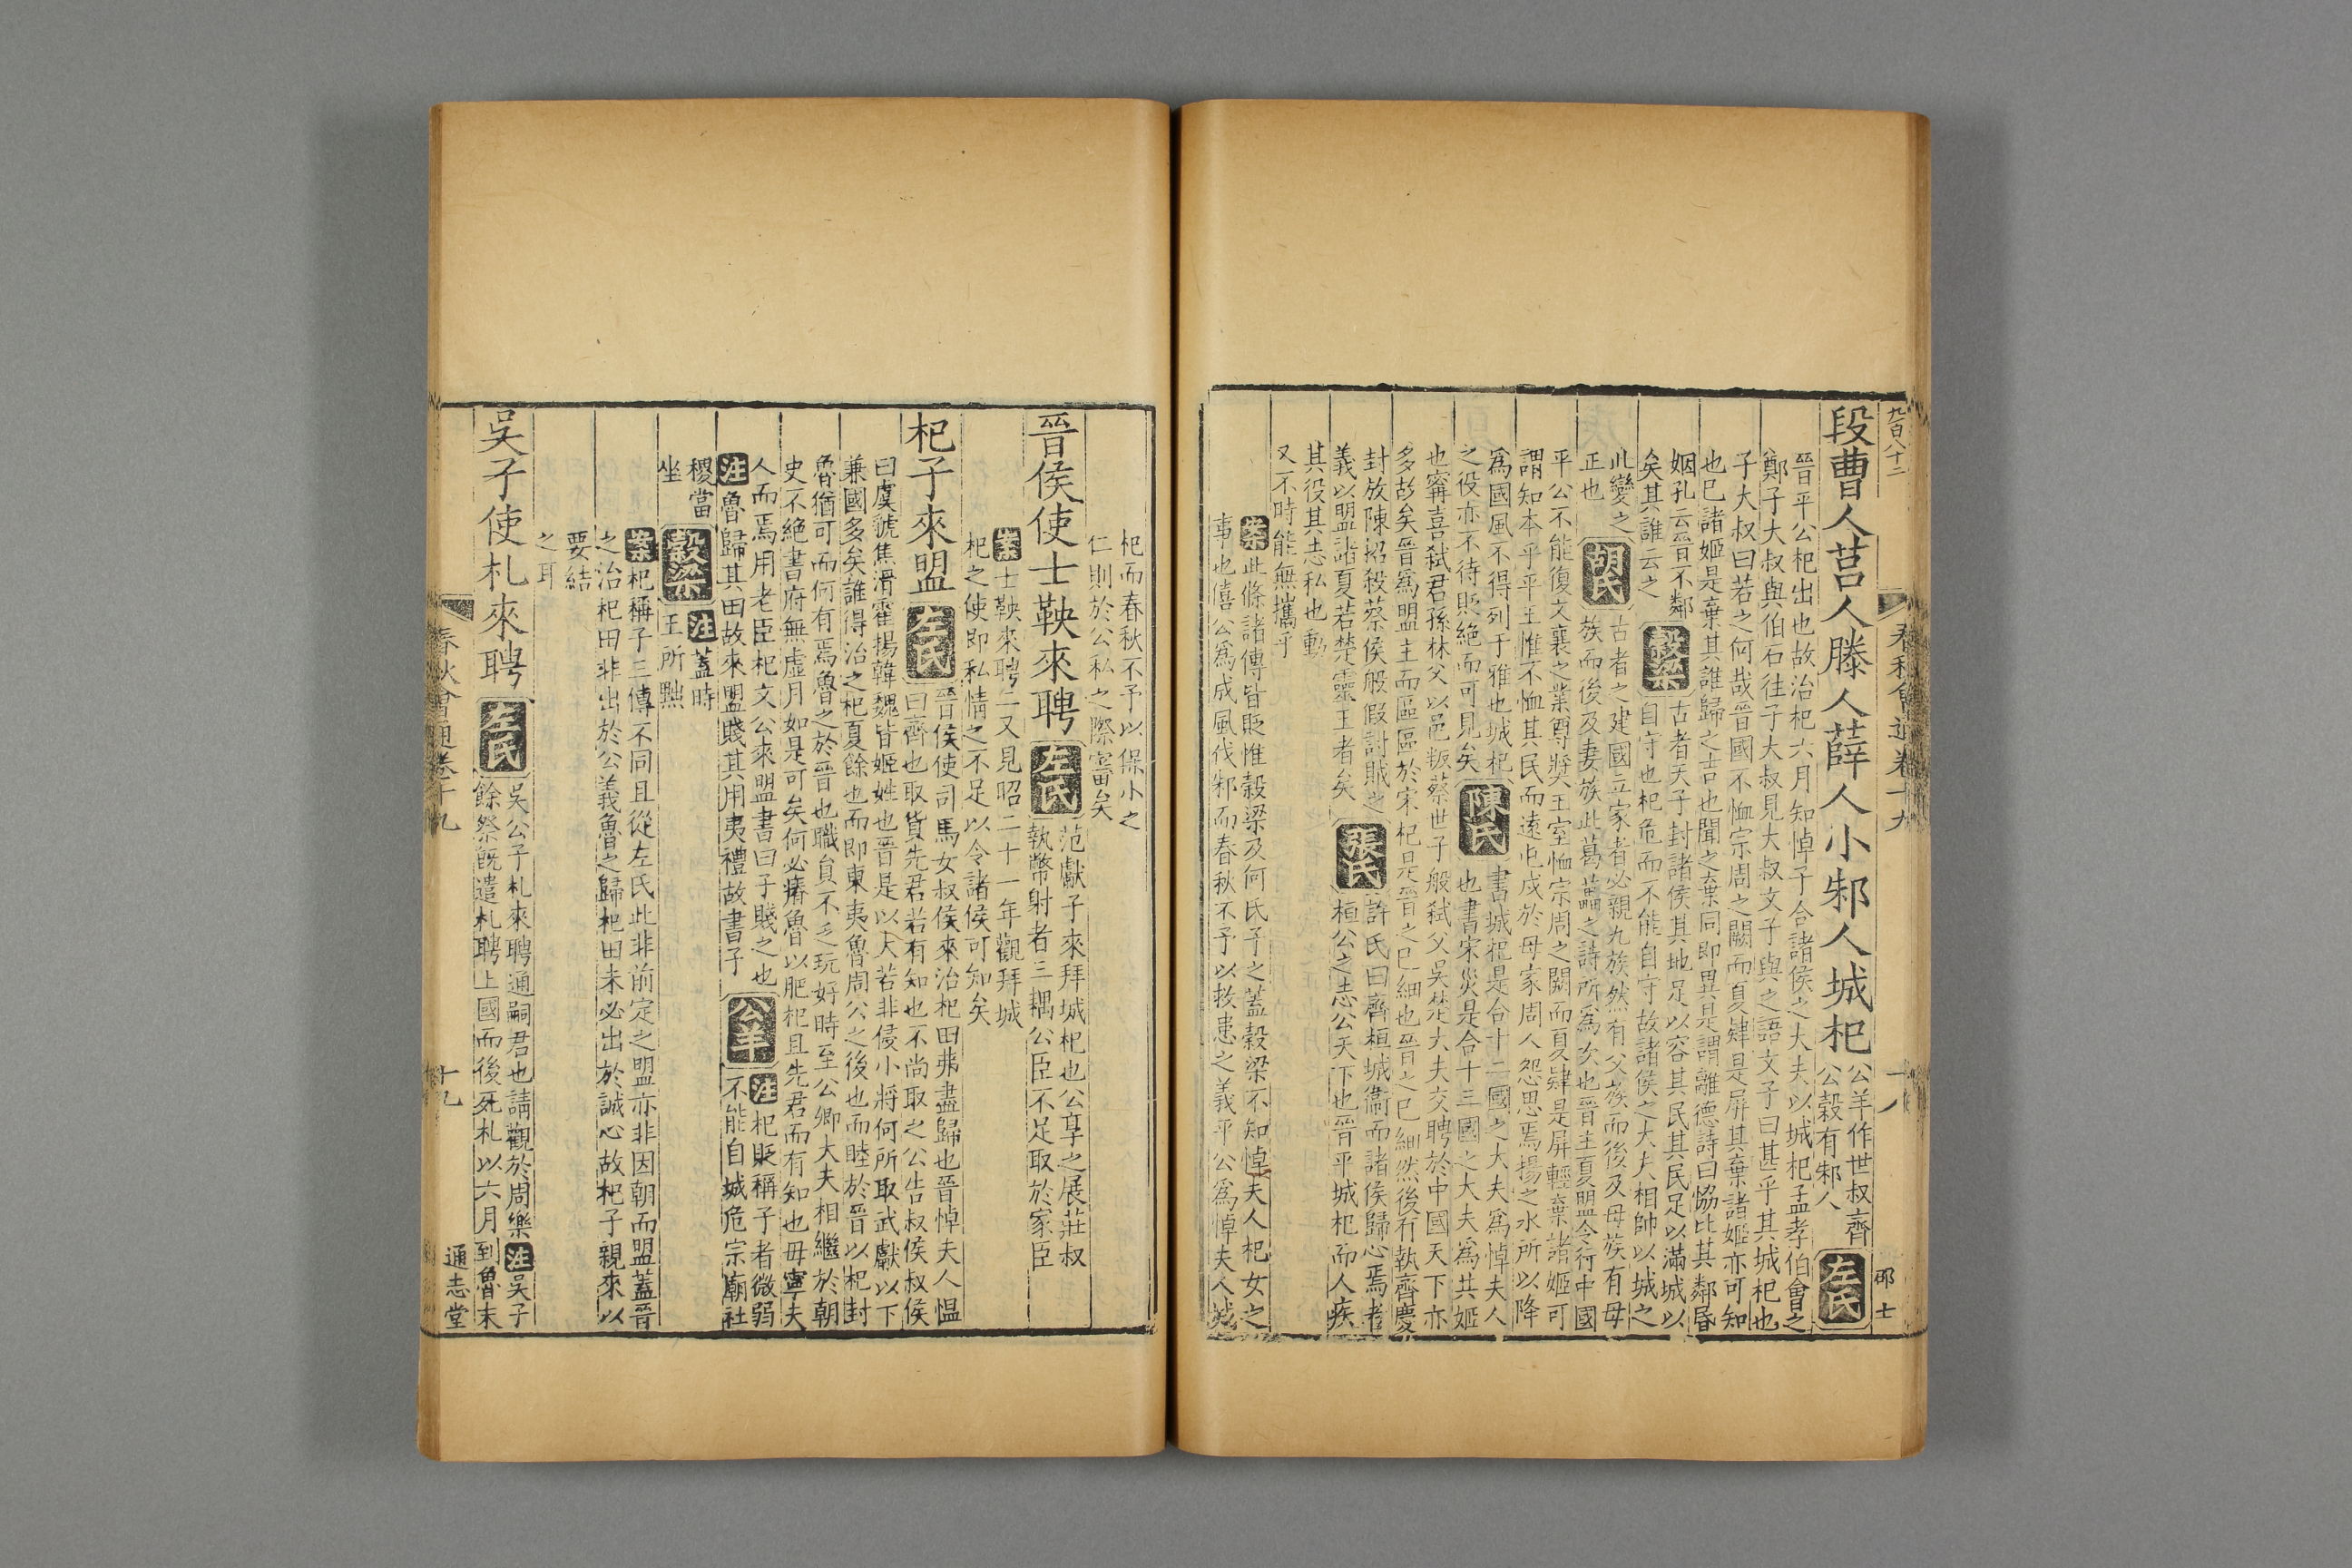 九百八十二
春秋會通卷十九
十八
邵士
段曹人莒人滕人薛人小邾人城杞
公羊作世叔齊
公穀有邾人
左氏
晉平公杞出也故治杞六月知悼子合諸侯之大夫以城杞孟孝伯會之
鄭子大叔與伯石往子大叔見大叔文子與之語文子曰甚乎其城杞也
子大叔曰若之何哉晉國不恤宗周之闕而夏肄是屏其棄諸姬亦可知
也已諸姬是棄其誰歸之吉也聞之棄同即異是謂離德詩曰協比其鄰昏
姻孔云晉不鄰
矣其誰云之
穀梁
古者天子封諸侯其地足以容其民其民足以滿城以
自守也杞危而不能自守故諸侯之大夫相帥以城之
此變之
正也
胡氏
古者之建國立家者必親九族然有父族而後及母族有母
族而後及妻族此葛藟之詩所為次也晉主夏盟令行中國
平公不能復文襄之業尊奬王室恤宗周之闕而夏肄是屏輕棄諸姬可
謂知本乎平王惟不恤其民而遠屯戍於母家周人怨思焉揚之水所以降
為國風不得列于雅也城杞
之役亦不待貶絕而可見矣
陳氏
書城杞是合十二國之大夫為悼夫人
也書宋災是合十三國之大夫為共姬
也甯喜弒君孫林父以邑叛蔡世子般弒父吳楚大夫交聘於中國天下亦
多故矣晉為盟主而區區於宋杞是晉之已細也晉之已細然後有執齊慶
封放陳招殺蔡侯般假討賊之
義以盟諸夏若楚靈王者矣
張氏
許氏曰齊桓城衞而諸侯歸心焉者
桓公之志公天下也晉平城杞而人疾
其役其志私也動
又不時能無攜乎
案此條諸傳皆貶惟穀梁及何氏予之蓋穀梁不知悼夫人杞女之
事也僖公為成風伐邾而春秋不予以救患之義平公為悼夫人城
杞而春秋不予以保小之
仁則於公私之際審矣
晉侯使士鞅來聘
左氏
范獻子來拜城杞也公享之展莊叔
執幣射者三耦公臣不足取於家臣
案士鞅來聘二又見昭二十一年觀拜城
杞之使即私情之不足以令諸侯可知矣
杞子來盟
左氏
晉侯使司馬女叔侯來治杞田弗盡歸也晉悼夫人愠
曰齊也取貨先君若有知也不尚取之公告叔侯叔侯
曰虞虢焦滑霍揚韓魏皆姬姓也晉是以大若非侵小將何所取武獻以下
兼國多矣誰得治之杞夏餘也而即東夷魯周公之後也而睦於晉以杞封
魯猶可而何有焉魯之於晉也職貢不乏玩好時至公卿大夫相繼於朝
史不絕書府無虛月如是可矣何必瘠魯以肥杞且先君而有知也毋寧夫
人而焉用老臣杞文公來盟書曰子賤之也
注魯歸其田故來盟賤其用夷禮故書子
公羊
注杞貶稱子者微弱
不能自城危宗廟社
稷當
坐
穀梁
注蓋時
王所黜
案杞稱子三傳不同且從左氏此非前定之盟亦非因朝而盟蓋晉
之治杞田非出於公義魯之歸杞田未必出於誠心故杞子親來以
要結
之耳
吳子使札來聘
左氏
吳公子札來聘通嗣君也請觀於周樂注吳子
餘祭既遣札聘上國而後死札以六月到魯未
春秋會通卷十九
十九
通志堂